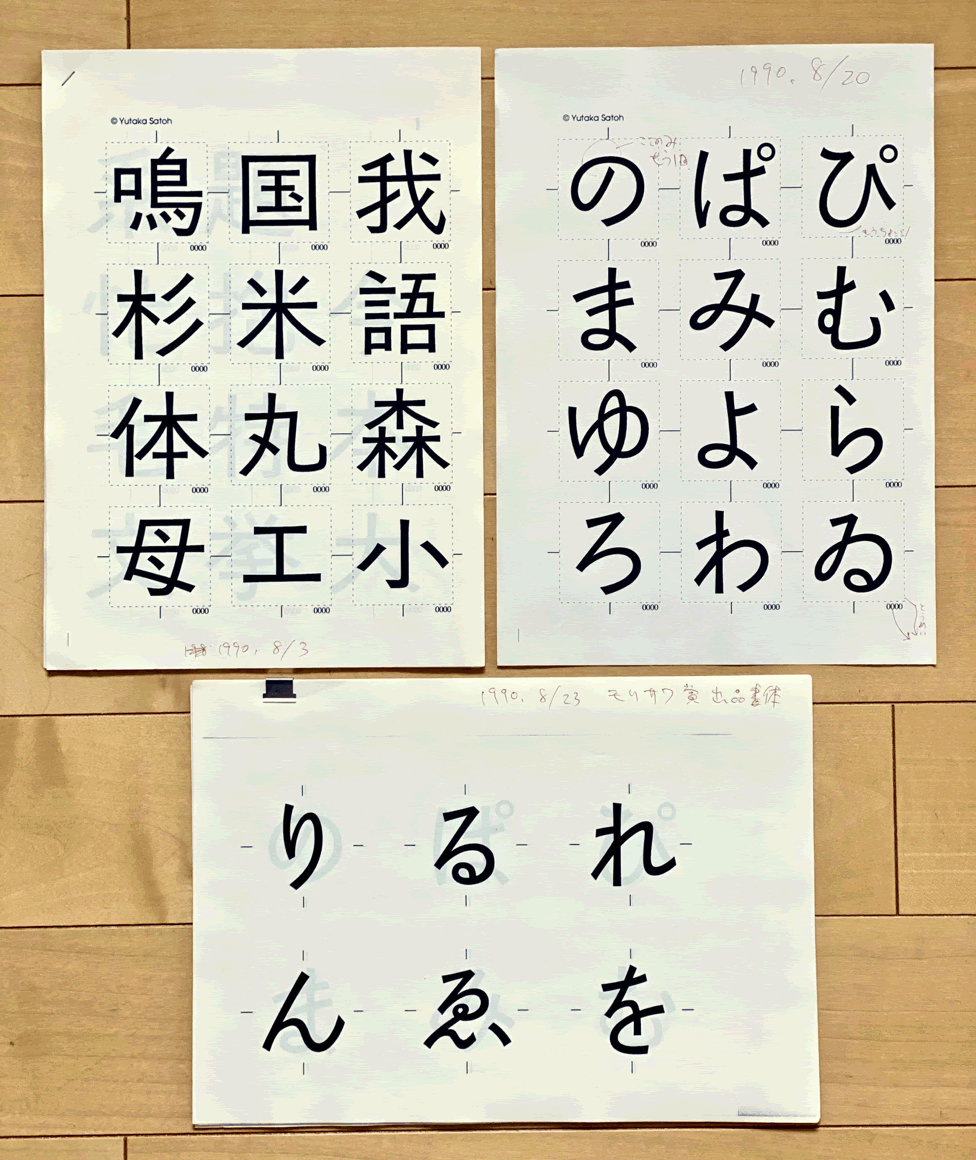 © Yutaka Satoh
鳴 国 我
0000 0000 0000
杉 米 語
0000 0000 0000
体 丸 森
0000 0000 0000
母 工 小
0000 0000 0000
1990. 8/3
1990. 8/20
© Yutaka Satoh
このみ
もう1日
の ぱ ぴ
もうちょっと
0000 0000 0000
ま み む
0000 0000 0000
ゆ よ ら
0000 0000 0000
ろ わ ゐ
0000 0000 0000
1990. 8/23 モリサワ賞 出品書体
り る れ
ん ゑ を